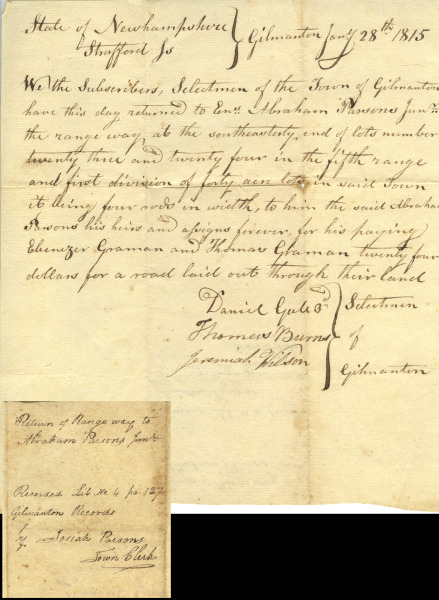 State of Newhampshire
Strafford Ss
Gilmanton Jany 28th 1815
We the Subscribers, Selectmen of the Town of Gilmanton
have this day returned to Ens. Abraham Parsons Junr.
the range way, at the southeasterly, end of lots number
twenty three and twenty four in the fifth range
and first division of forty acre lots, in said Town
it being four rods in width, to him the said Abraham
Parsons his heirs and assigns forever, for his paying
Ebenezer Graman and Thomas Graman twenty four
dollars for a road laid out through their land
Daniel Gale 3d
Thomas Burns
Jeremiah Wilson
Selectmen
of
Gilmanton
Return of Range way to
Abraham Parsons Junr.
Recorded Lib No. 4 pa. 127
Gilmanton Records
Josiah Parsons
Town Clerk